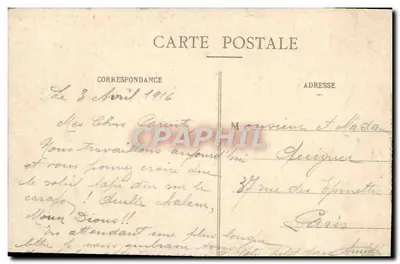 CARTE POSTALE
CORRESPONDANCE
ADRESSE
Le 3 Avril 1916
Mes Chers Parents
CPAPHIL
Monsieur et Madame
Nous travaillons aujourd'hui
et vous pouvez croire que
le soleil tape dur sur le
37 rue des Epinettes
Quelle chaleur,
Mon Dious!!
Paris
En attendant une plus longue
lettre je